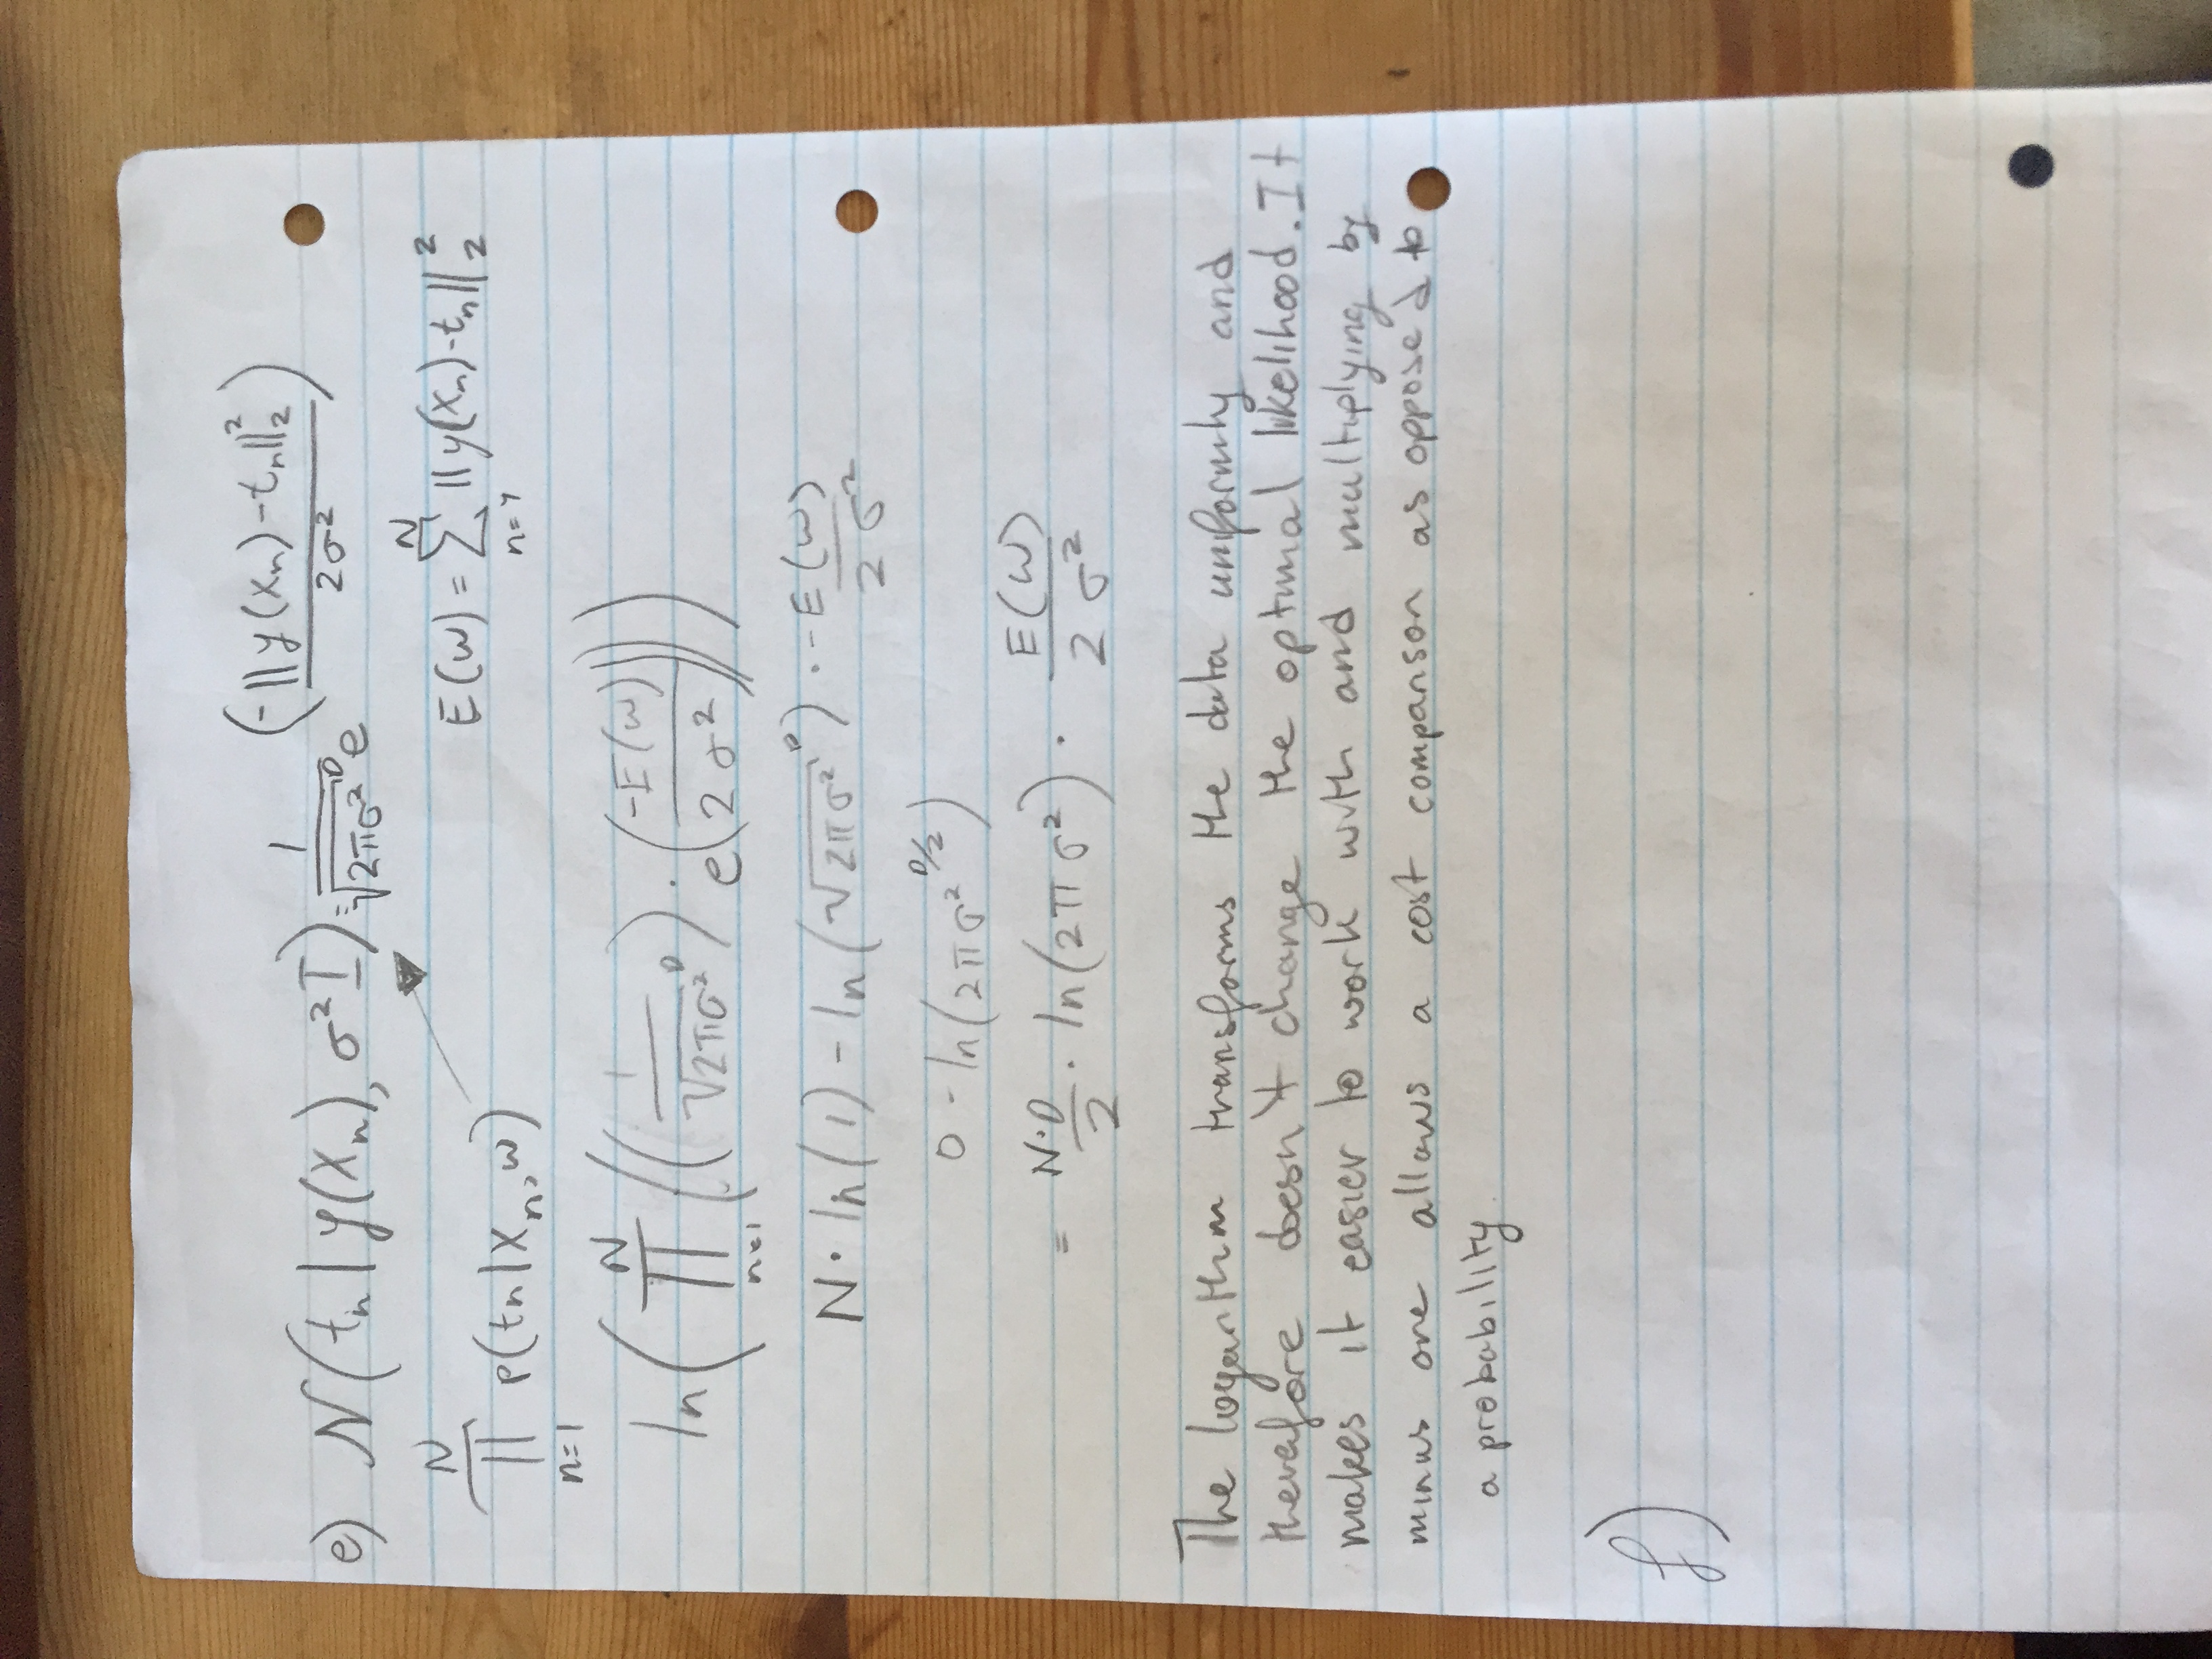 e) N(tₙ | y(xₙ), σ² I) = 1/√(2πσ²)^D e^(-‖y(xₙ)-tₙ‖₂²/2σ²)
∏_{n=1}^{N} p(tₙ|xₙ, w)
E(w) = ∑_{n=1}^{N} ‖y(xₙ)-tₙ‖₂²
ln(∏_{n=1}^{N} ((1/√(2πσ²)^D) · e^(-E(w)/2σ²)))
N · ln(1) - ln(√(2πσ²)^D) · -E(w)/2σ²
0 - ln(2πσ²^{D/2})
= N·D/2 · ln(2πσ²) · E(w)/2σ²
The logarithm transforms the data uniformly and
therefore doesn't change the optimal likelihood. It
makes it easier to work with and multiplying by
minus one allows a cost comparison as opposed to
a probability.
f)